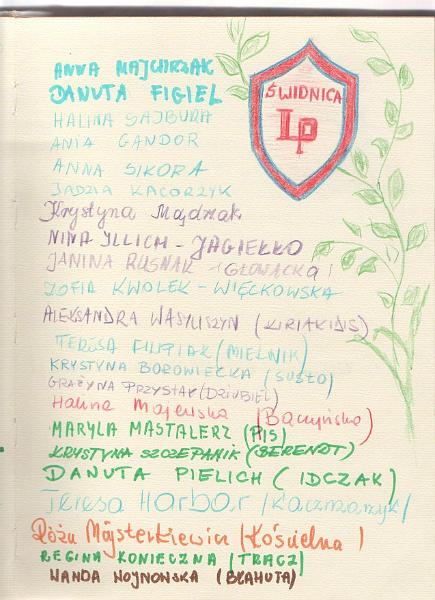 ANNA MAJCHRZAK
DANUTA FIGIEL
ŚWIDNICA
LP
HALINA SAJBURA
ANIA GANDOR
ANNA SIKORA
JADZIA KACORZYK
Krystyna Majdziak
NINA ILLICH - JAGIEŁŁO
JANINA RUSNAK (GŁOWACKA)
ZOFIA KWOLEK - WIĘCKOWSKA
ALEKSANDRA WASYLISZYN (KIRIAKIDIS)
TERESA FILIPIAK (MIELNIK)
KRYSTYNA BOROWIECKA (SUSŁO)
GRAŻYNA PRZYSTAŚ (DZIUBIEL)
Halina Majewska (Bączyńska)
MARYLA MASTALERZ (PIS)
KRYSTYNA SZCZEPANIK (BERENDT)
DANUTA PIELICH (IDCZAK)
Teresa Harbar /Kaczmarzyk/
Róża Majsterkiewicz (Kościelna)
REGINA KONIECZNA (TRACZ)
WANDA WOJNOWSKA (BŁAHUTA)